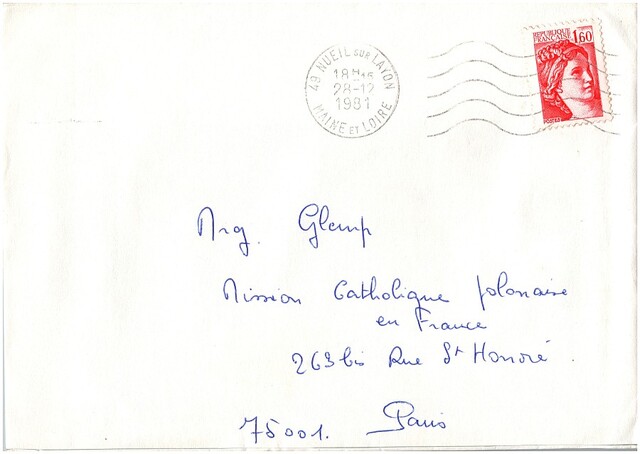 49 NUEIL SUR LAYON
18H15
28-12
1981
MAINE ET LOIRE
REPUBLIQUE
FRANÇAISE 1,60
Mrg. Glemp
Mission Catholique polonaise
en France
263 bis Rue St Honoré.
75001. Paris